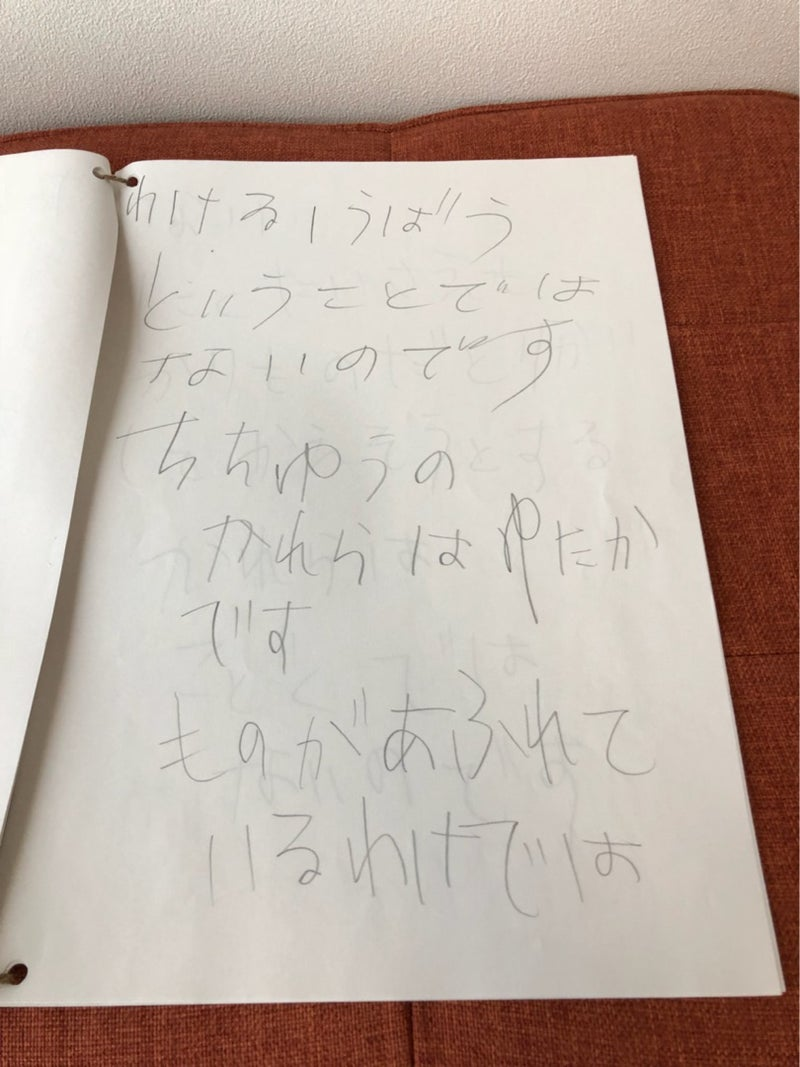 わけるしうばう
ということでは
ないのです
ちちゆうの
かれらはゆたか
です
ものがあふれて
いるわけでは